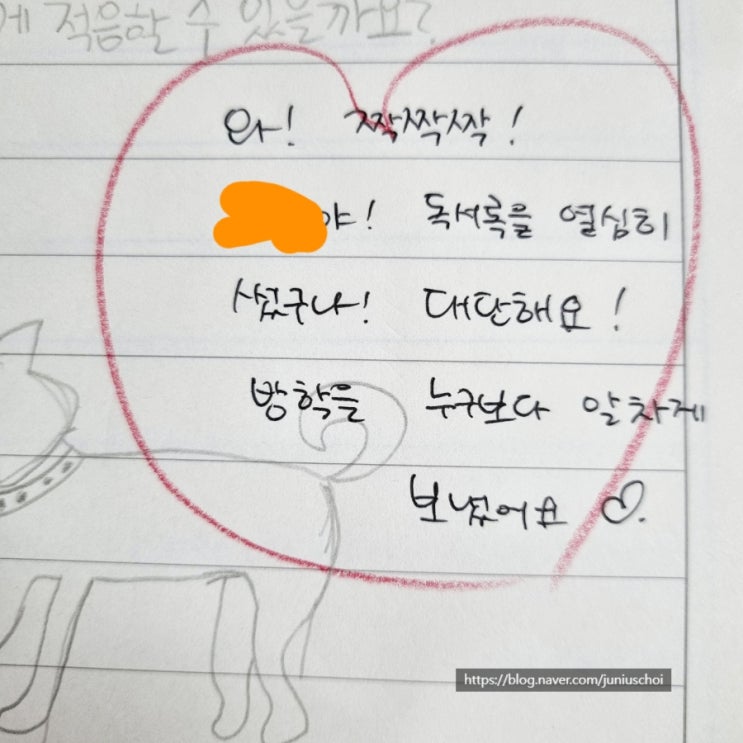 에 적응할 수 있을까요?
와! 짝짝짝!
야! 독서록을 열심히
썼구나! 대단해요!
방학을 누구보다 알차게
보냈어요 ♡.
https://blog.naver.com/juniuschoi